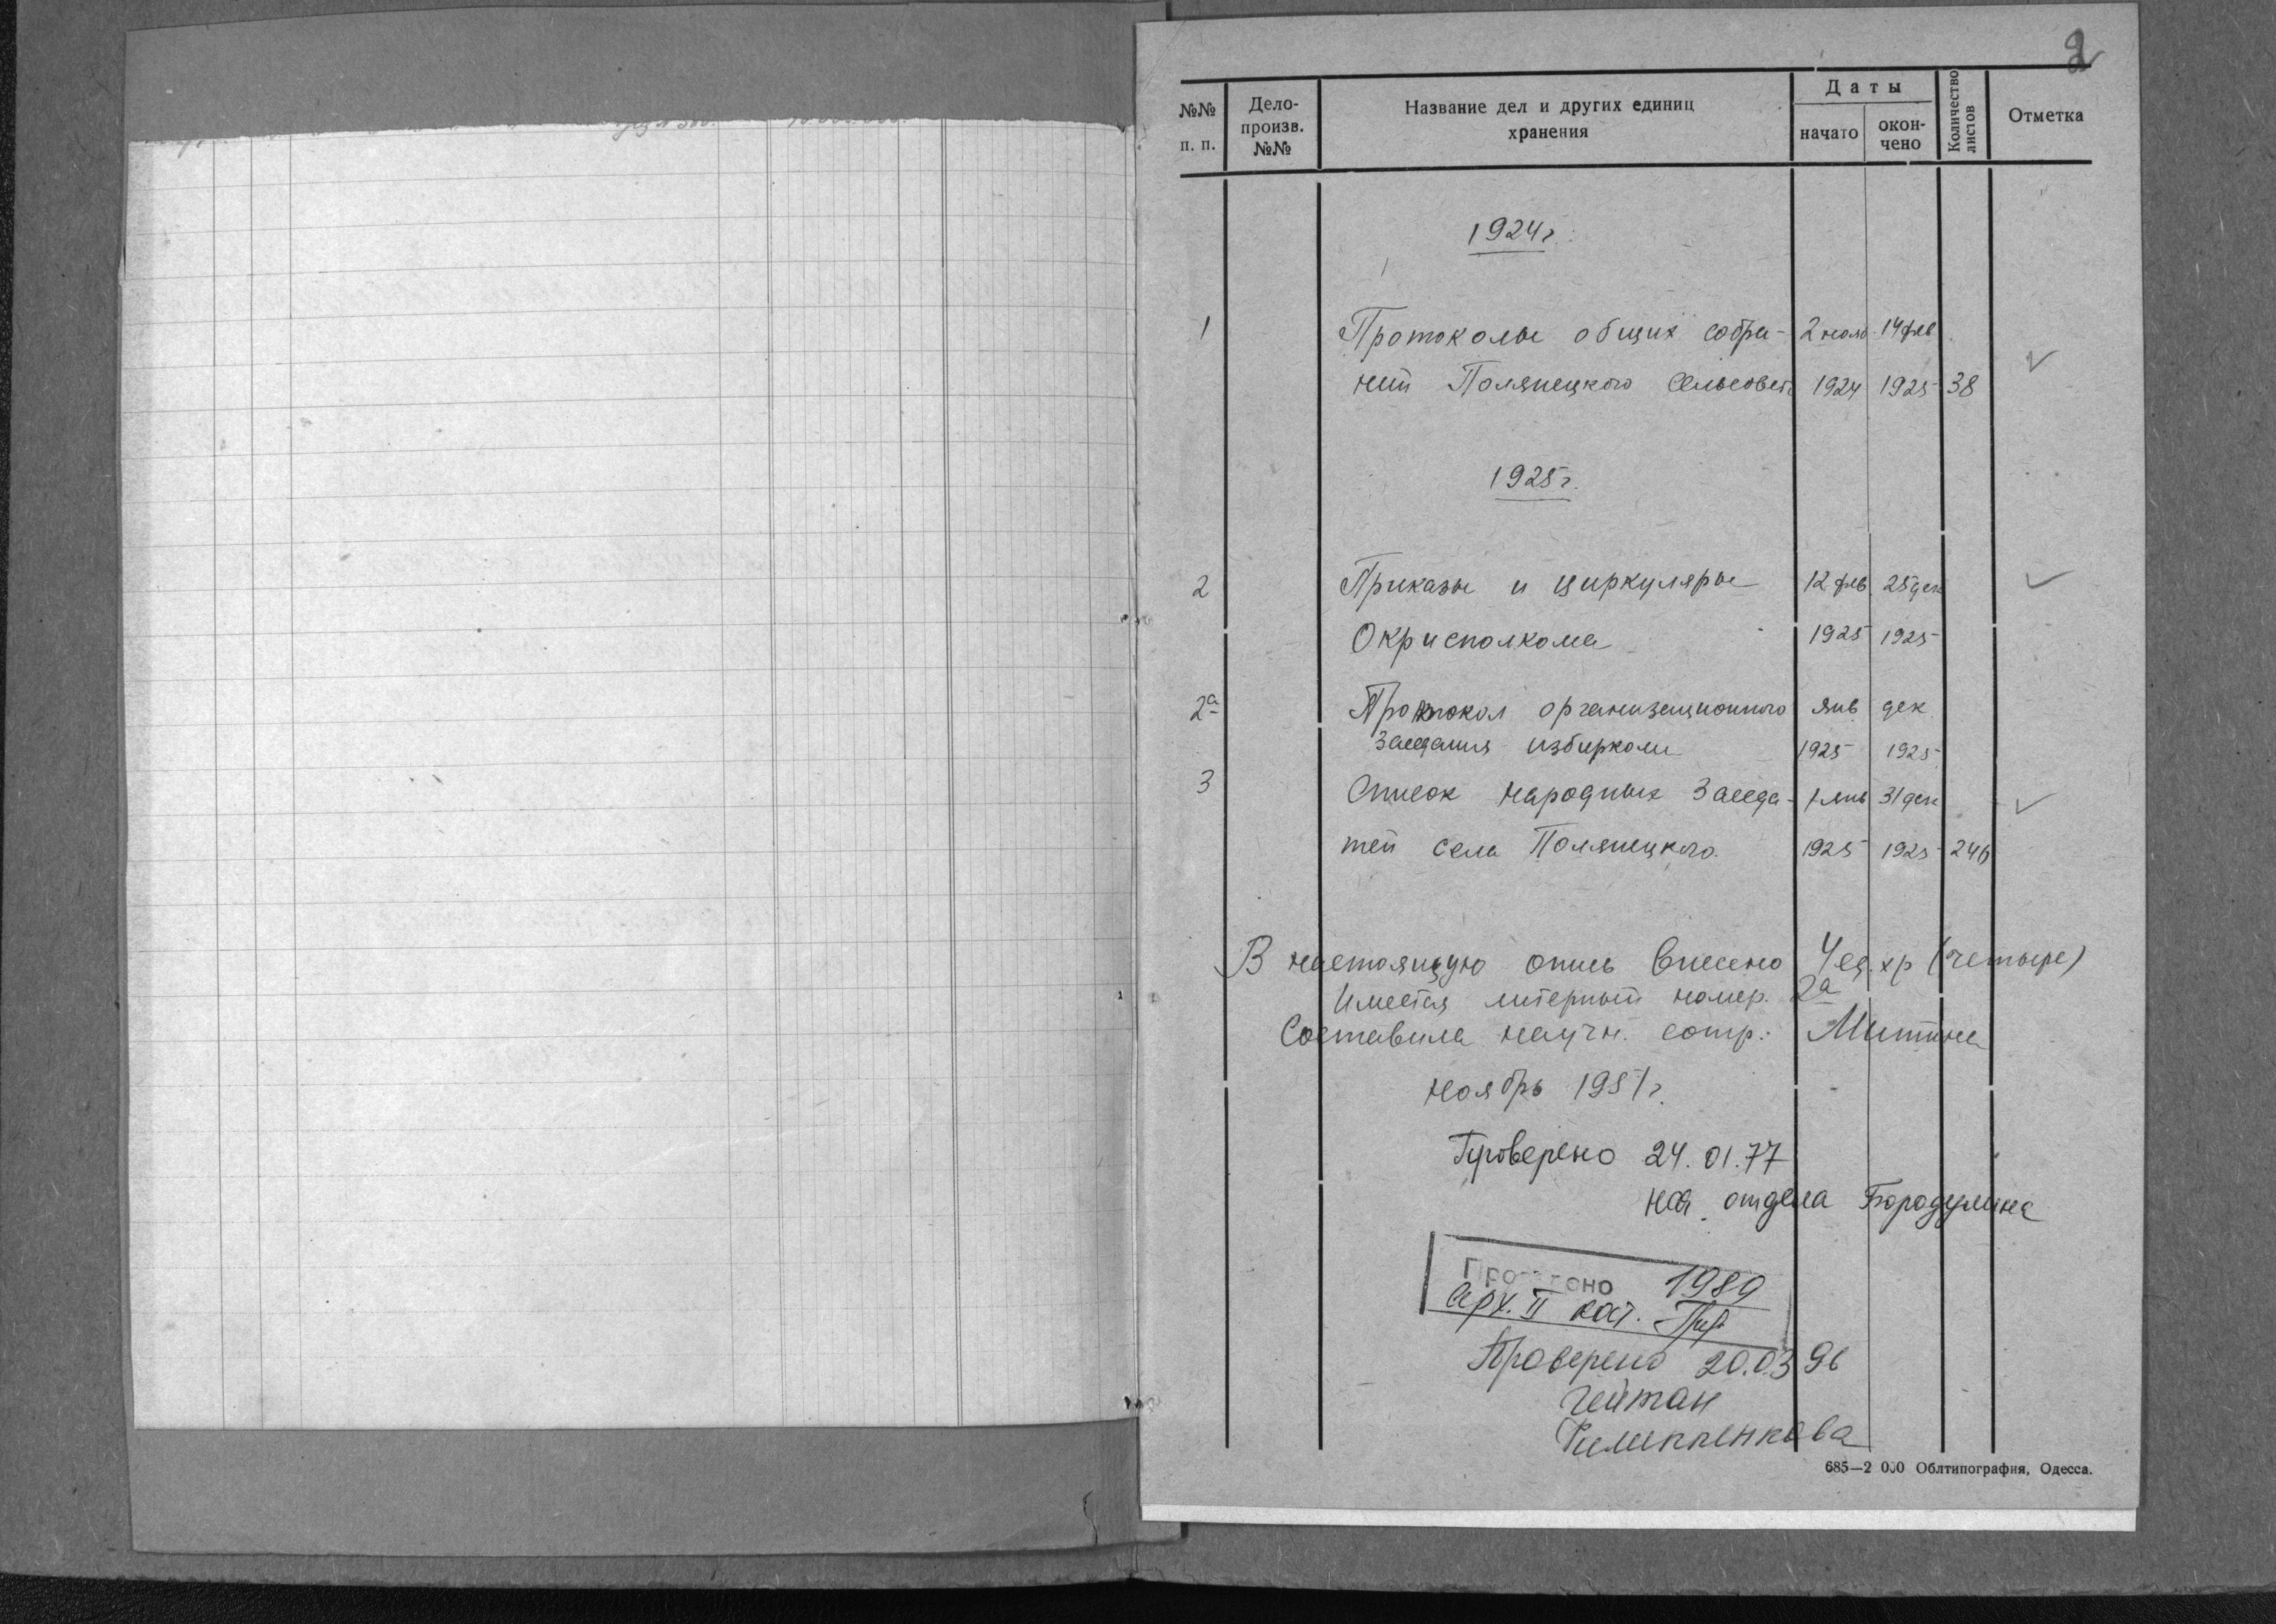 2
№№ п. п.
Дело-произв. №№
Название дел и других единиц
хранения
Даты
начато
окон-чено
Количество листов
Отметка
1924 г.
1 Протоколы общих собра- 2 нояб 14 фев
ний Полянецкого Сельсовета 1924 1925 38
1925 г.
2 Приказы и циркуляры 12 фев 25 дек
Окрисполкома 1925 1925
2а Протокол организационного янв дек
заседания избиркома 1925 1925
3 Список народных заседа- 1 янв 31 дек
тей села Полянецкого 1925 1925 246
В настоящую опись внесено 4 ед. хр (четыре)
Имеется литерный номер. 2а
Составила научн. сотр. Митина
ноябрь 1951 г.
Проверено 24.01.77
нач. отдела Бородулина
1989
арх. II кат.
Проверено 20.03 96
Гейтан
Филиппенкова
685—2 000 Облтипография, Одесса.